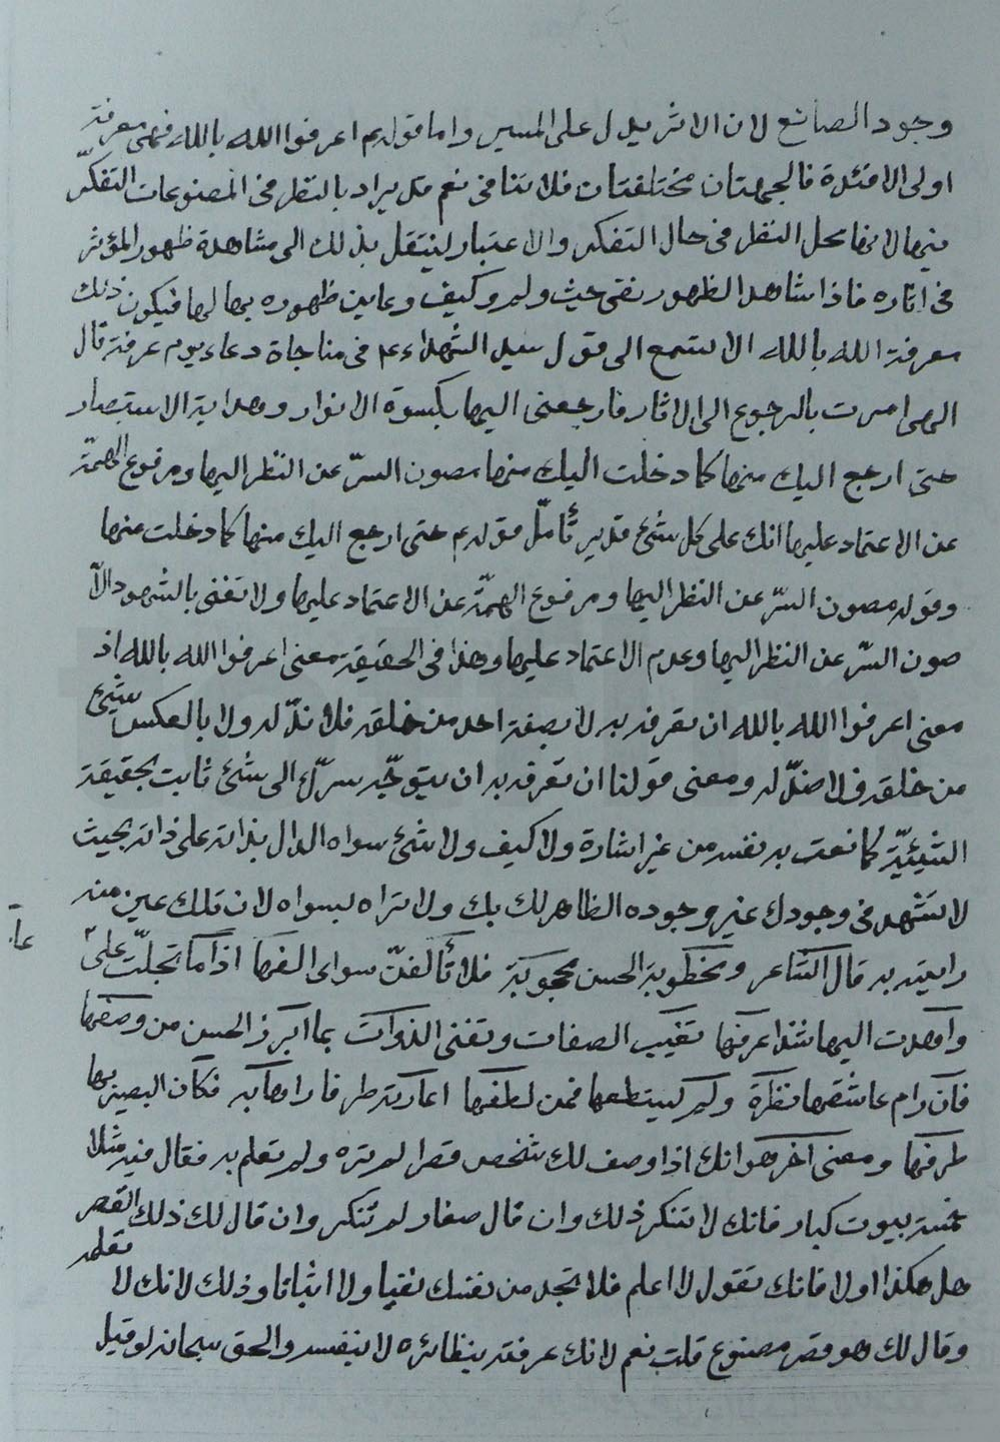 وجود الصانع لان الاثر يدل على المسير واما قوله ع اعرفوا الله بالله فهى معرفة
اولى الافئدة فالجهتان مختلفتان فلا تنافى نعم قد يراد بالنظر فى المصنوعات التفكّر
فيها لا انها محل النظر فى حال التفكر والاعتبار لينتقل بذلك الى مشاهدة ظهور المؤثر
فى اثاره فاذا شاهد الظهور نفى حيث ولم وكيف وعاين ظهوره بها لها فيكون ذلك
معرفة الله بالله الا تستمع الى قول سيد الشهداء ع فى مناجاة دعاء يوم عرفة قال
الهى امرت بالرجوع الى الاثار فارجعنى اليها بكسوة الانوار وهداية الاستبصار
حتى ارجع اليك منها كما دخلت اليك منها مصون السرّ عن النظر اليها ومرفوع الهمّة
عن الاعتماد عليها انك على كل شئ قدير تأمّل قوله ع حتى ارجع اليك منها كما دخلت منها
وقوله مصون السرّ عن النظر اليها ومرفوع الهمّة عن الاعتماد عليها ولا تعنى بالشهود الّا
صون السرّ عن النظر اليها وعدم الاعتماد عليها وهذا فى الحقيقة معنى اعرفوا الله بالله اذ
معنى اعرفوا الله بالله ان تعرفه به لا بصفة احد من خلقه فلا ندّ له ولا بالعكس شئ
من خلقه فلا ضدّ له ومعنى قولنا ان تعرفه به ان يتوجّه سرّك الى شئ ثابت بحقيقة
الشيئيّة كما نعت به نفسه من غير اشارة ولا كيف ولا شئ سواه الدال بذاته على ذاته بحيث
لا تشهد فى وجودك غير وجوده الظاهر لك بك ولا تراه بسواه لان تلك عين منه
رايته به قال الشاعر ومخطوبة الحسن محجوبة فلا تألفنّ سوى الفها اذا ما تجلّت على
عا
واهدت اليها شذا عرفها تغيب الصفات وتفنى الذوات بما ابرز الحسن من وصفها
فان رام عاشقها نظرة ولم يستطعها فمن لطفها اعارته طرفا راها به فكان البصير بها
طرفها ومعنى آخر هو انك اذا وصف لك شخص قصرا لم تره ولم تعلم به فقال فيه مثلا
خمسة بيوت كبار فانك لا تنكر ذلك وان قال صغار لم تنكر وان قال لك ذلك القصر
هل هكذا اولا فانك تقول لا اعلم فلا تجد من نفسك نفيا ولا اثباتا وذلك لانك لا تعلمه
وقال لك هو قصر مصنوع قلت نعم لانك عرفته بنظائره لا بنفسه والحق سبحانه لو قيل